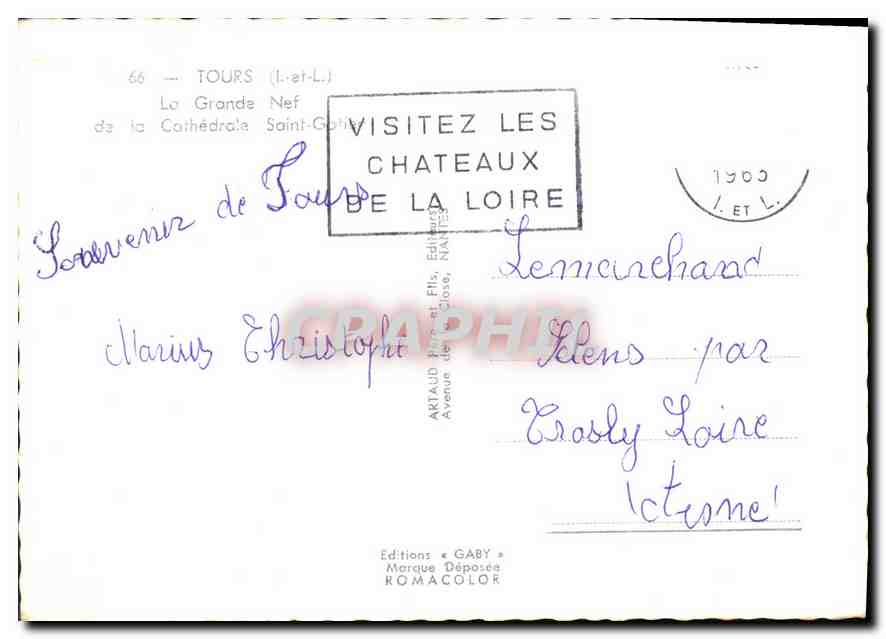 66 — TOURS (I.-et-L.)
La Grande Nef
de la Cathédrale Saint-Gatien
VISITEZ LES
CHATEAUX
DE LA LOIRE
I. ET L.
Souvenir de Tours
Marius Christophe
Lemarchand
Selens par
Trosly Loire
(Aisne)
ARTAUD Père et Fils, Editeurs
Avenue de la Close, NANTES
Editions « GABY »
Marque Déposée
ROMACOLOR